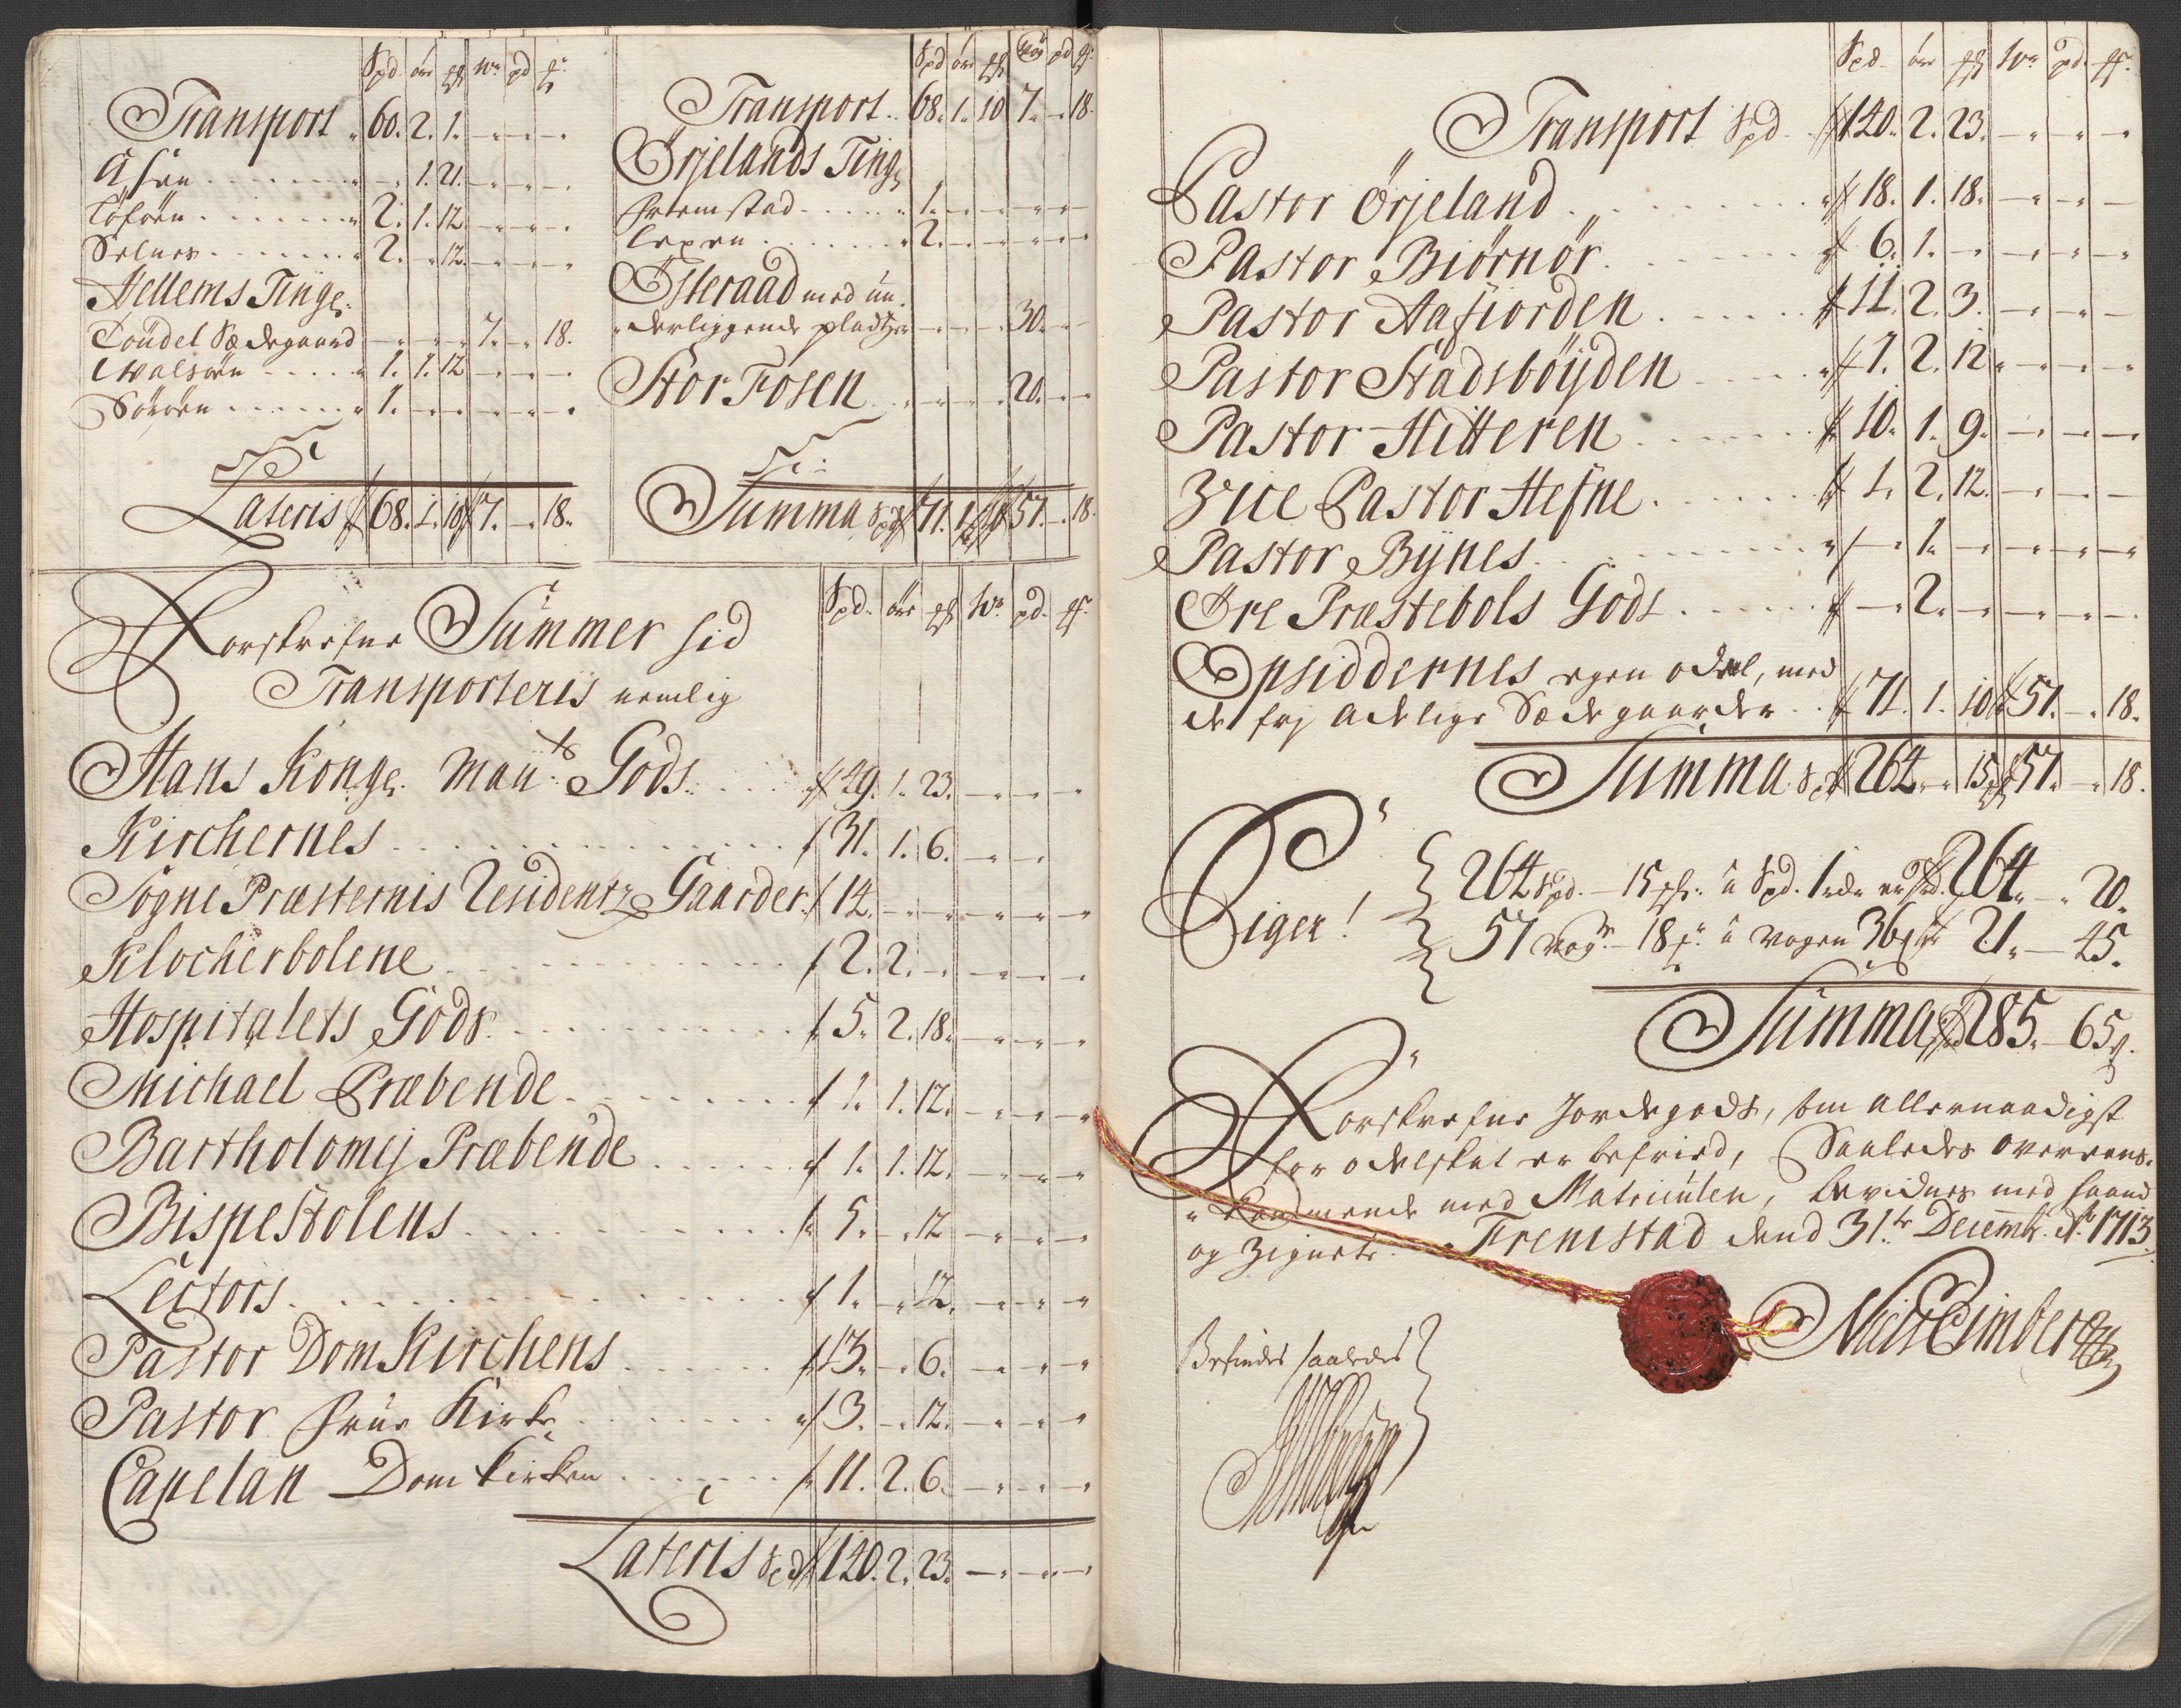 Spd. ører pf. W. pd. f.
Transport. 60. 2. 1. — — —
Aasen — 1. 21. — — —
Tøfsøen 2. 1. 12. — — —
Selnes 2. — 12. — — —
Jøllems Ting.
Tøndel Sædegaard — — — 7. — 18.
Walsøen 1. 1. 12 — — —
Sørøen 1. — — — — —
Lateris 68. 1. 10 7. — 18.
Spd ører pf. Wog pd. f.
Transport. 68. 1. 10 7. — 18.
Ørjelands Ting
Fremstad 1. — — — — —
2. — — — — —
Østeraad med un-
derliggende pladtzer — — — 30. — —
Stor Fosen — — — 20. — —
Summa Spd 71. 1. 10 57. — 18.
Spd. ører pf. W. pd. f.
Forskrefne Summer hid
Transporteris nemlig
Hans Konge. Maytts Gods 29. 1. 23. — — —
Kirchernes 31. 1. 6. — —
Sogne Præsternis Residentz Gaarder 14. — — — — —
Klocherbolene 2. 2. — — — —
Hospitalets Gods 5. 2. 18. — — —
Michael Præbende 1. 1. 12. — — —
Bartholomej Præbende 1. 1. 12. — — —
Bispestolens 5. — 12 — — —
Lectors 1. — 12. — — —
Pastor Dom Kirchens 13. — 6. — — —
Pastor Frue Kirke 3. — 12. — — —
Capelan Dom Kirken 11. 2. 6. — — —
Lateris Spd 120. 2. 23. — — —
Spd. ører pf. W. pd. f.
Transport Spd. 120. 2. 23. — — —
Pastor Ørjeland 18. 1. 18. — — —
Pastor Biørnør 6. 1. — — — —
Pastor Aafiorden 11. 2. 3. — — —
Pastor Stadsbøyden 7. 2. 12 — — —
Pastor Hitteren 10. 1. 9. — — —
Vice Pastor Hefne 1. 2. 12. — — —
Pastor Bynes — 1. — — — —
Øre Præstebols Gods — 2. — — — —
Opsiddernes egen odel, med
de frj Adelige Sædegaarder 71. 1. 10 57. — 18.
Summa Spd 264. — 15 57. — 18.
Siger! 264 Spd. — 15 pf. a Spd. 1 rd. er 264. — 20.
57 Wog — 18 f. a Wogen 36 s er 21. — 45.
Summa 285. — 65 s.
Forskrefne Jordegods, som allernaadigst
for odelskat er befried, Saaledes overeens-
kommende med Matriculen, bevidnes med haand
og Zignete. Fremstad dend 31.te Decembr. Ao. 1713
Niels Cimber
Befindes saaledes